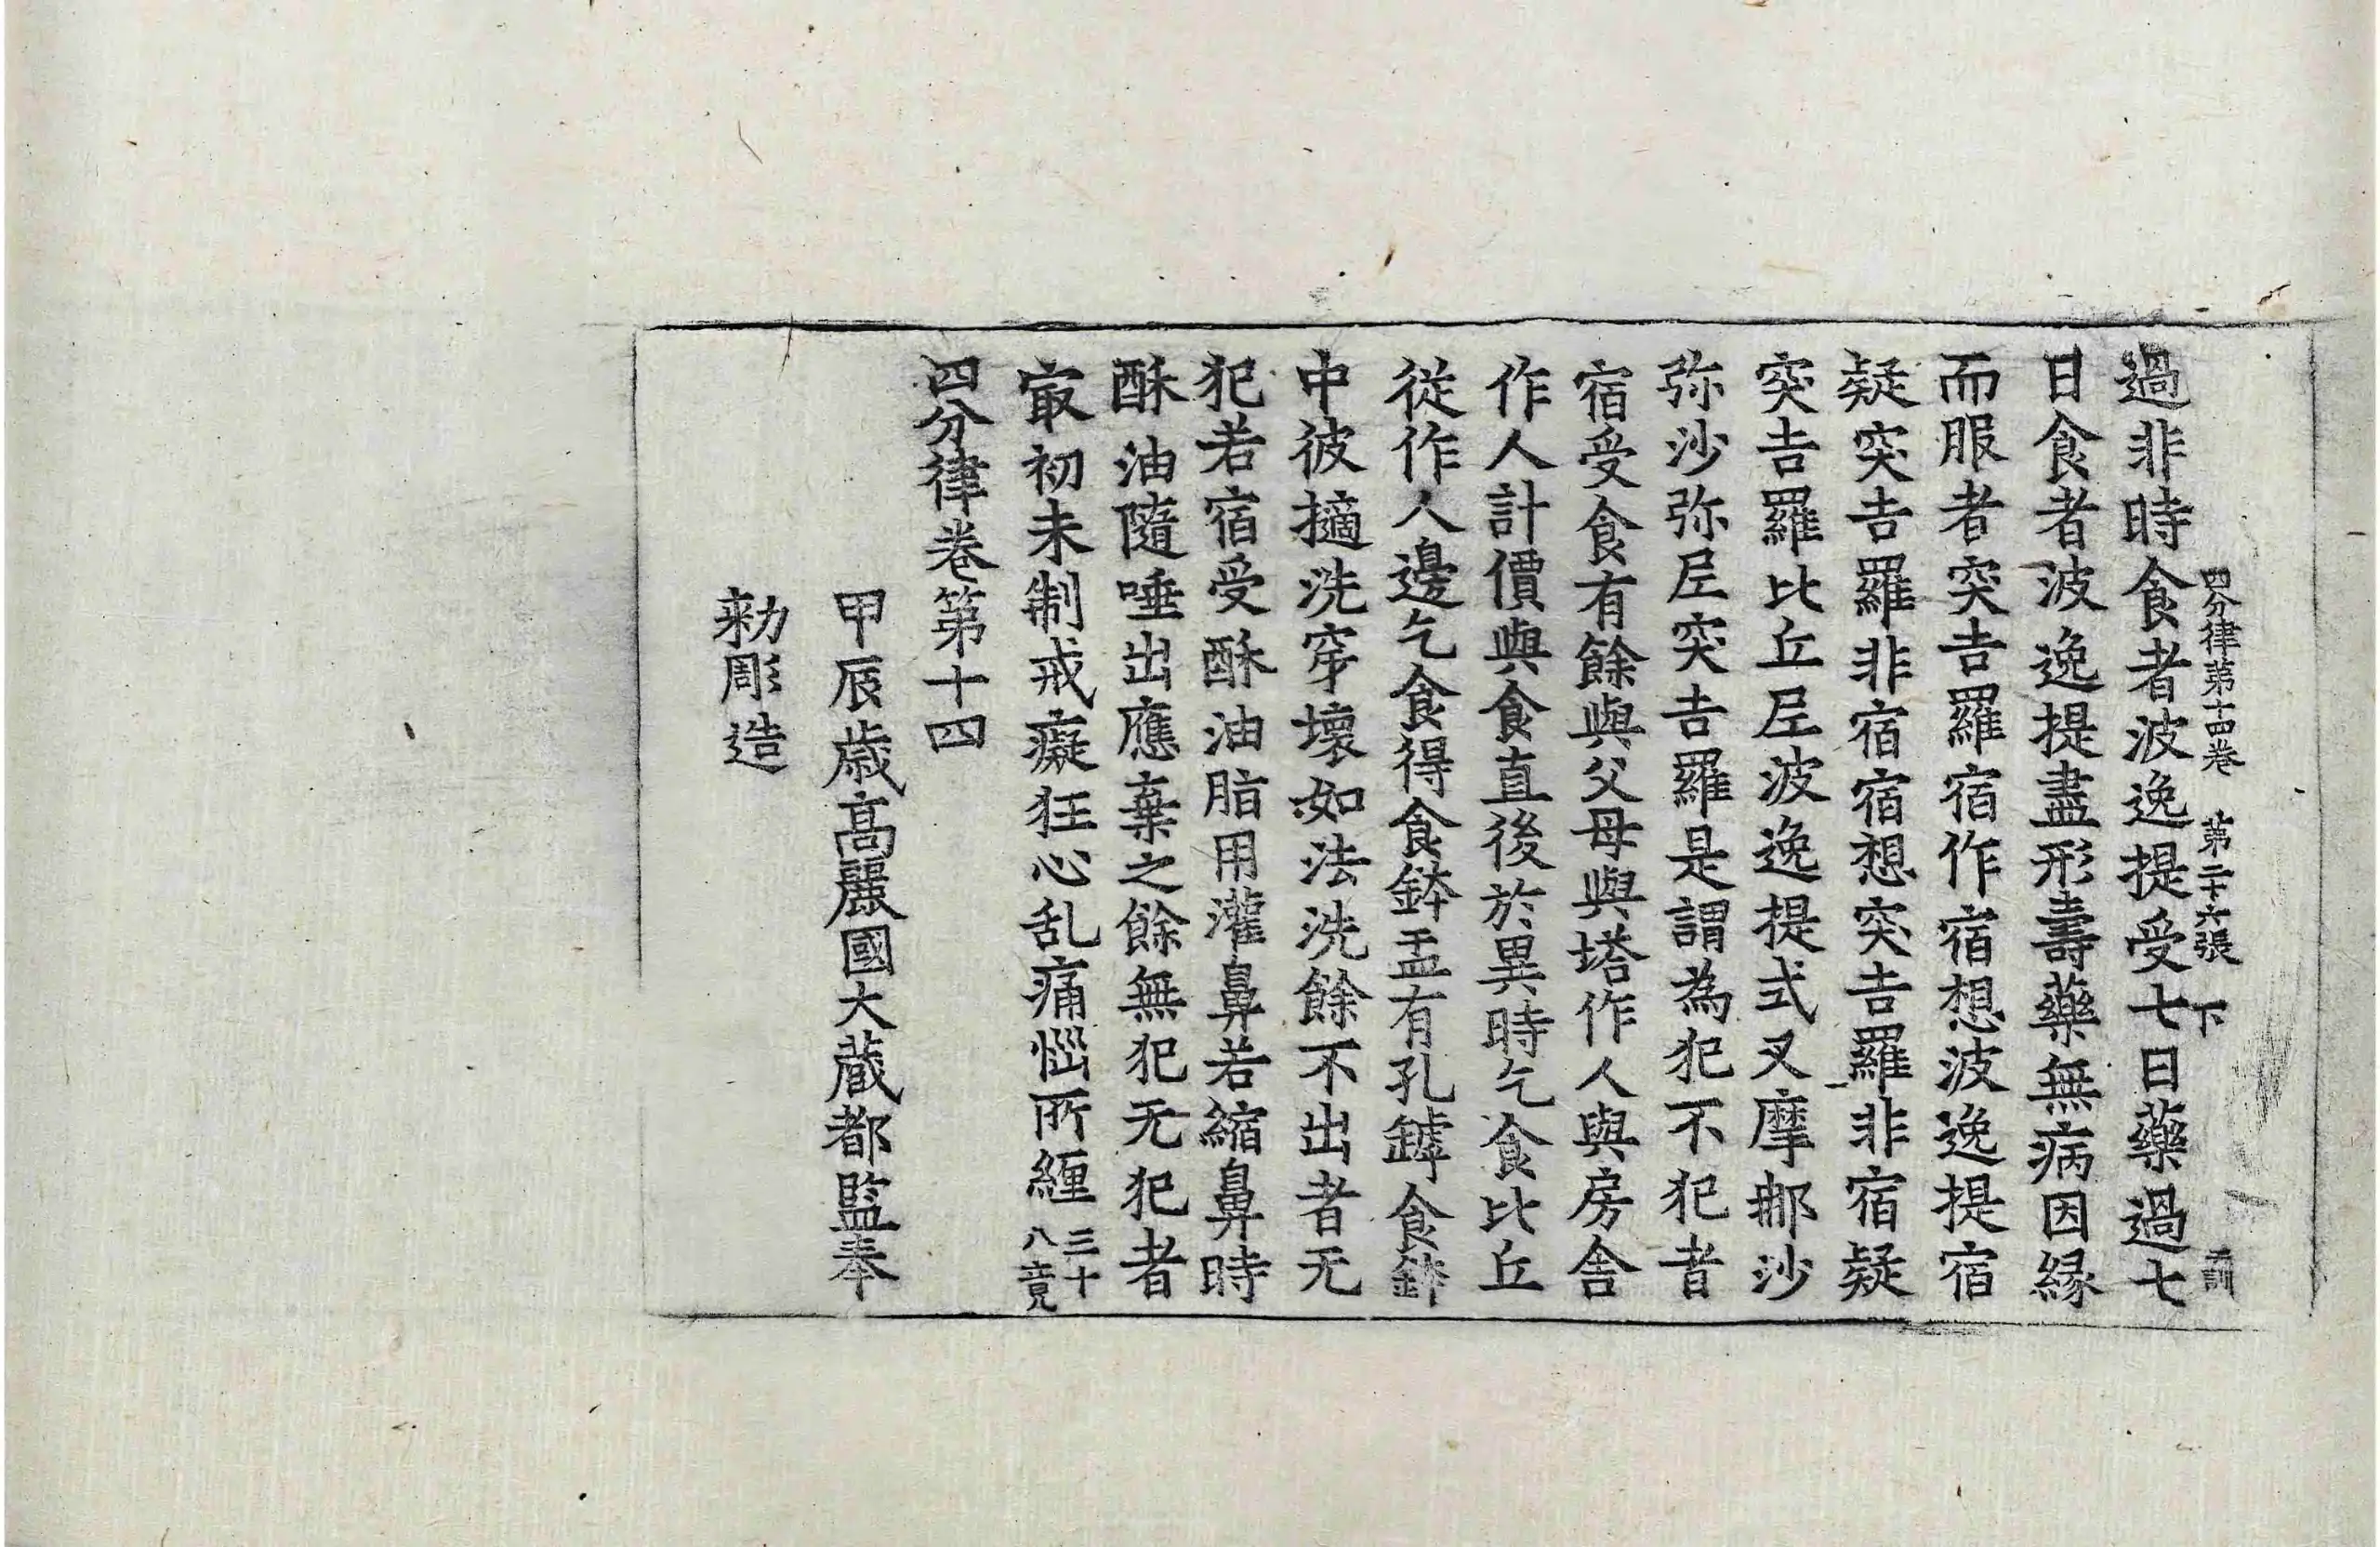 四分律第十四卷 第二十六張 下
過非時食者波逸提受七日藥過七
日食者波逸提盡形壽藥無病因縁
而服者突吉羅宿作宿想波逸提宿
疑突吉羅非宿宿想突吉羅非宿疑
突吉羅比丘尼波逸提式叉摩那沙
弥沙弥尼突吉羅是謂為犯不犯者
宿受食有餘與父母與塔作人與房舎
作人計價與食直後於異時乞食比丘
從作人邊乞食得食鉢盂有孔罅食鉢
中彼擿洗穿壞如法洗餘不出者无
犯若宿受酥油脂用灌鼻若縮鼻時
酥油隨唾出應棄之餘無犯无犯者
㝡初未制戒癡狂心乱痛惱所纏三十八竟
四分律卷第十四
甲辰歳高麗國大藏都監奉
勑彫造